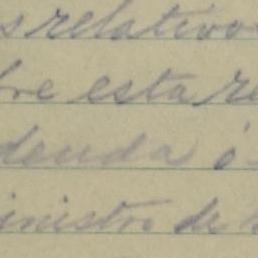 s relativo
re esta re
deuda ó
inistro de